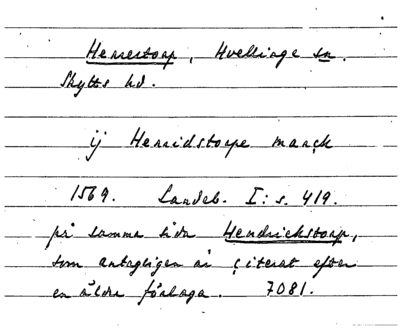 Henrestorp, Hvellinge sn.
Skytts hd.
ij Henridstorpe marck
1569. Landeb. I: s. 419.
på samma sida Hendrickstorp,
som antagligen är citerat efter
en äldre förlaga. 7081.